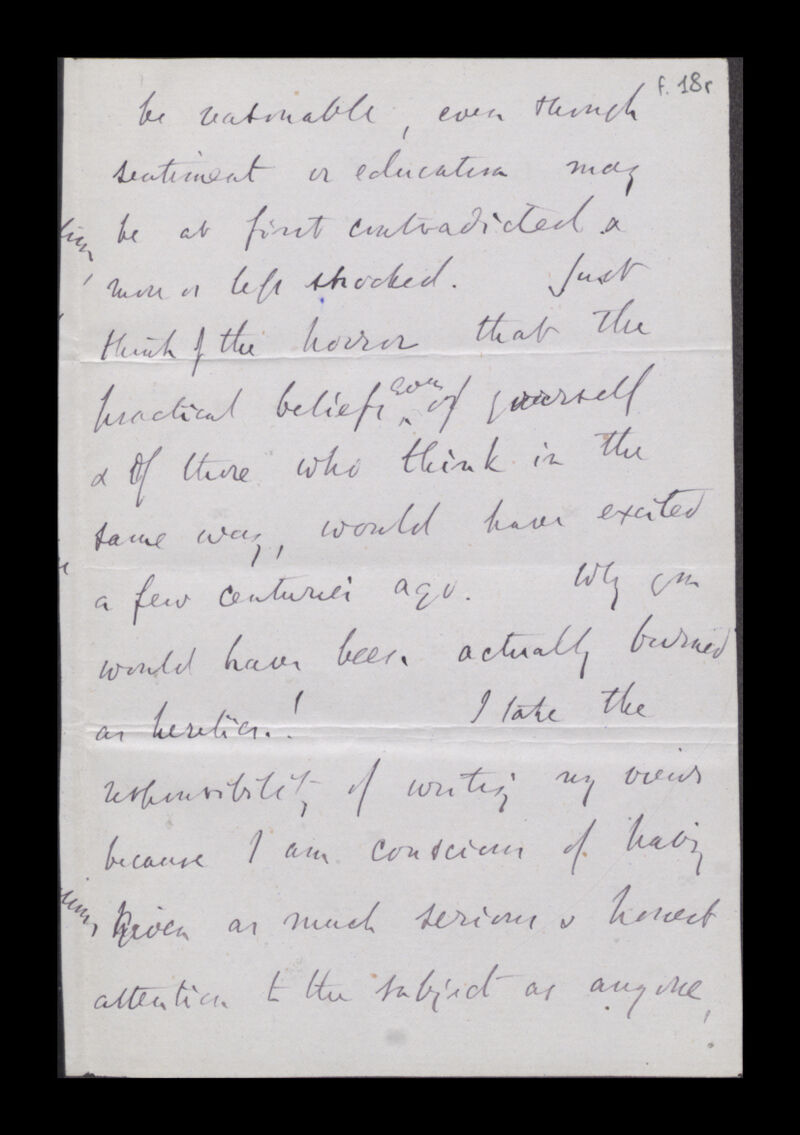 f. 18r
be reasonable, even though
sentiment or education may
be at first contradicted &
more or less shocked. Just
think of the horror that the
practical beliefs even of yourself
& of those who think in the
same way, would have excited
a few centuries ago. Why you
would have been actually burned
as heretics.! I take the
responsibility of writing my views
because I am conscious of having
given as much serious & honest
attention to the subject as anyone,